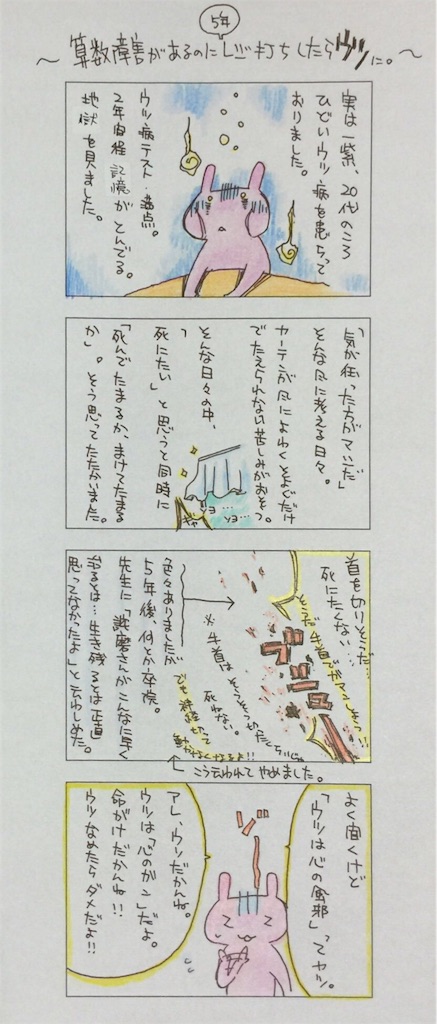 5年
〜算数障害があるのにレジ打ちしたらウツに。〜
実は一紫、20代のころ
ひどいウツ病を患らって
おりました。
ウツ病テスト満点。
2年間程記憶がとんでる。
地獄を見ました。
「気が狂った方がマシだ」
そんな風に考える日々。
カーテンが風によわくそよぐだけ
でたえられない苦しみがおそう。
そんな日々の中、
「死にたい」と思うと同時に
「死んでたまるか、まけてたまる
か」。そう思ってたたかいました。
ソヨ…
ソヨ…
ギャ
首を切りそうだ…
死にたくない…
そうだ手首でガマンしよう!!
ブシュ
※手首はそうそう切ったくらいじゃ
死ねない。
でも神経切って
動かなくなるよ!!
↑こう云われてやめました。
色々ありましたが
5年後、何とか卒院。
先生に「播磨さんがこんなに早く
治るとは…生き残るとは正直
思ってなかったよ」と云わしめた。
よく聞くけど
「ウツは心の風邪」ってヤツ。
アレ、ウソだかんね。
ウツは「心のガン」だよ。
命がけだかんね!!
ウツなめたらダメだよ!!